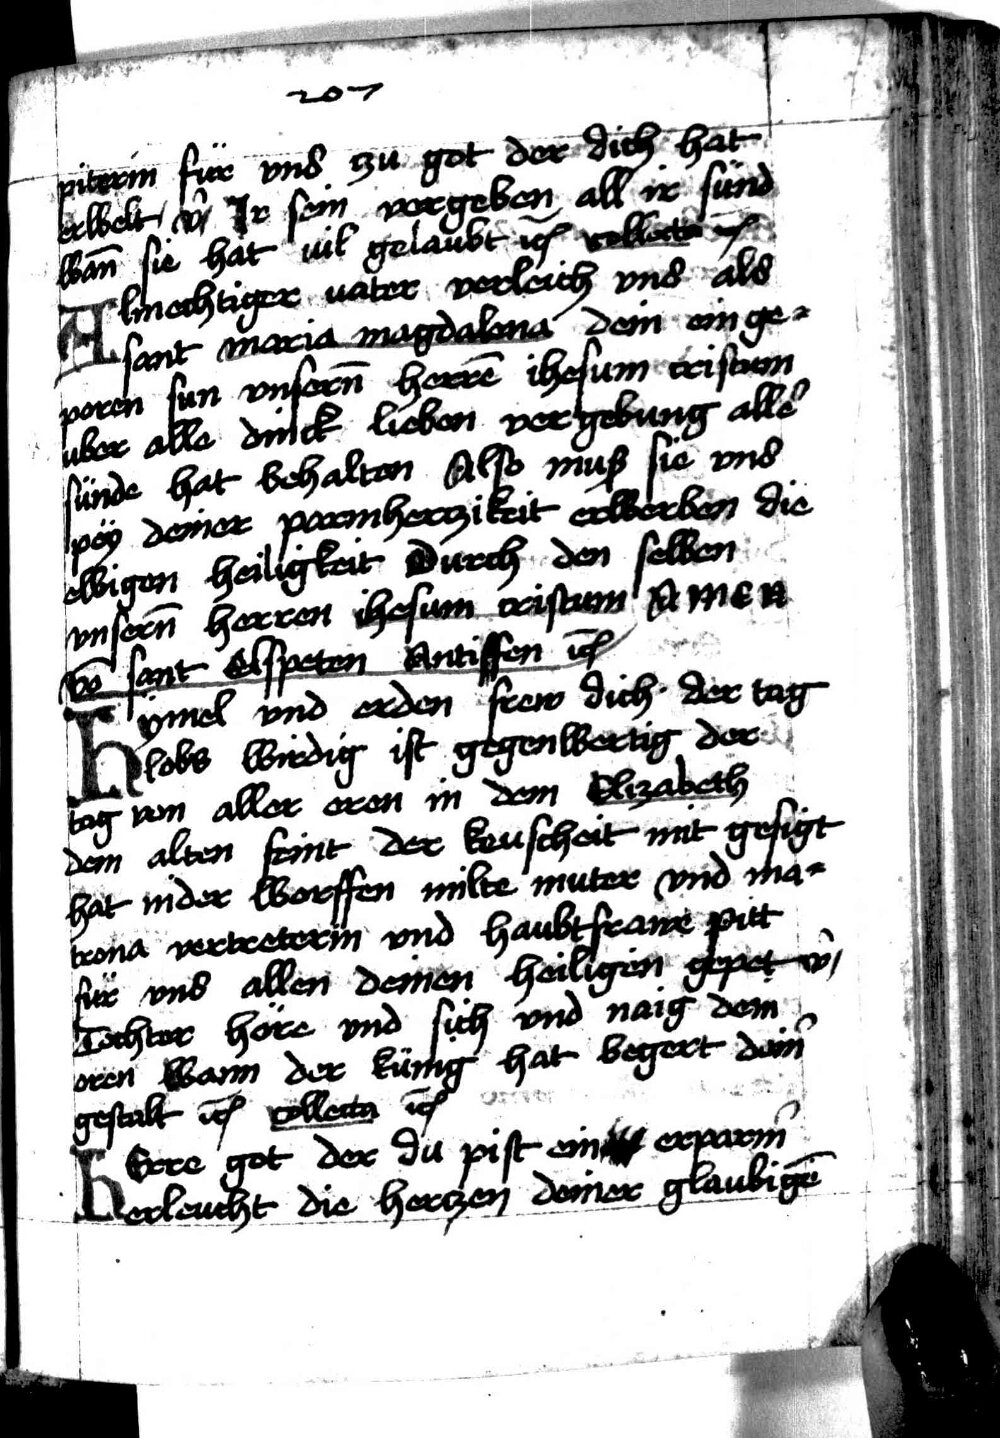 207
piterin für vns zu got der dich hat
erwelt v̂ Ir sein vergeben all ir sünd
wan̄ sie hat uil gelaubt ic̄ collecta ic̄
Almechtiger uater verleich vns als
sant maria magdalena dein ein ge-
poren sun vnsern̄ herrē ihesum cristum
uber alle dinck lieben vergebung alle᷒
sünde hat behalten Also muß sie vns
pey deiner parmherczikeit erwerben die
ewigen heiligkeit Durch den selben
vnsern̄ herren ihesum cristum AMEN
vō sant Elspeten Antiffen ic̄
Hymel vnd erden frew dich der tag
lobs wirdig ist gegenwertig der
tag von aller eren in dem Elizabeth
dem alten feint der keuscheit mit gesigt
hat nider worffen milte muter vnd ma-
trona vertreterin vnd haubtfrawe pitt
für vns allen deinen heiligen gepet v̂
Tochter höre vnd sich vnd naig dem
oren wann der künig hat begert dein᷒
gestalt ic̄ collecta ic̄
HErre got der du pist ein erparm᷒
erleucht die herczen deiner glaubigē